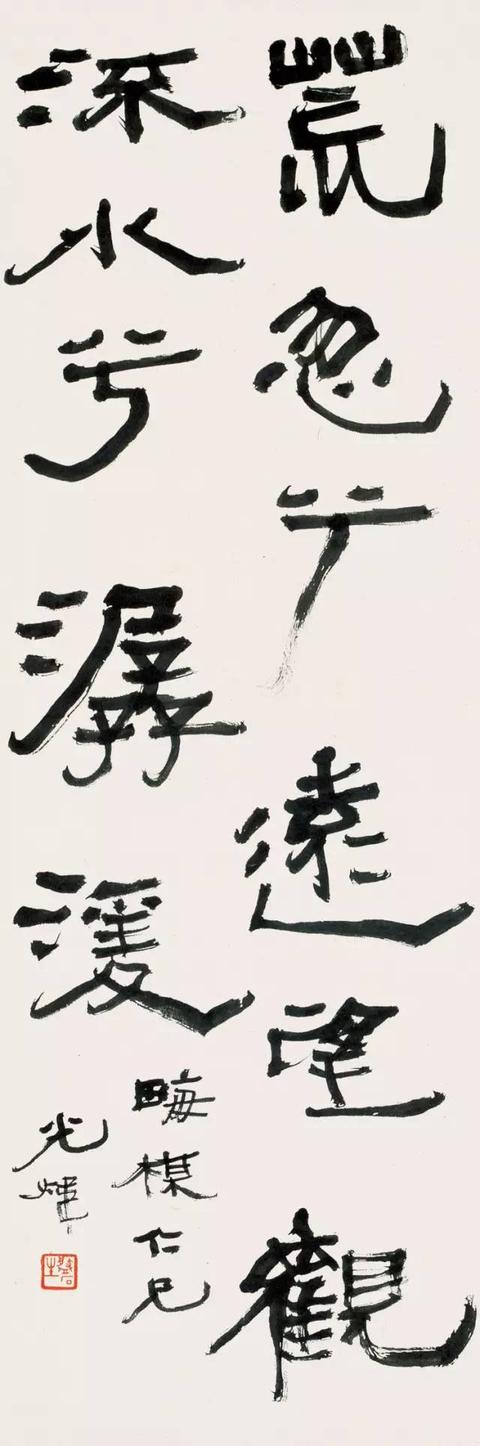 荒忽兮遠望觀
流水兮潺湲
畮楳仁兄
光煒